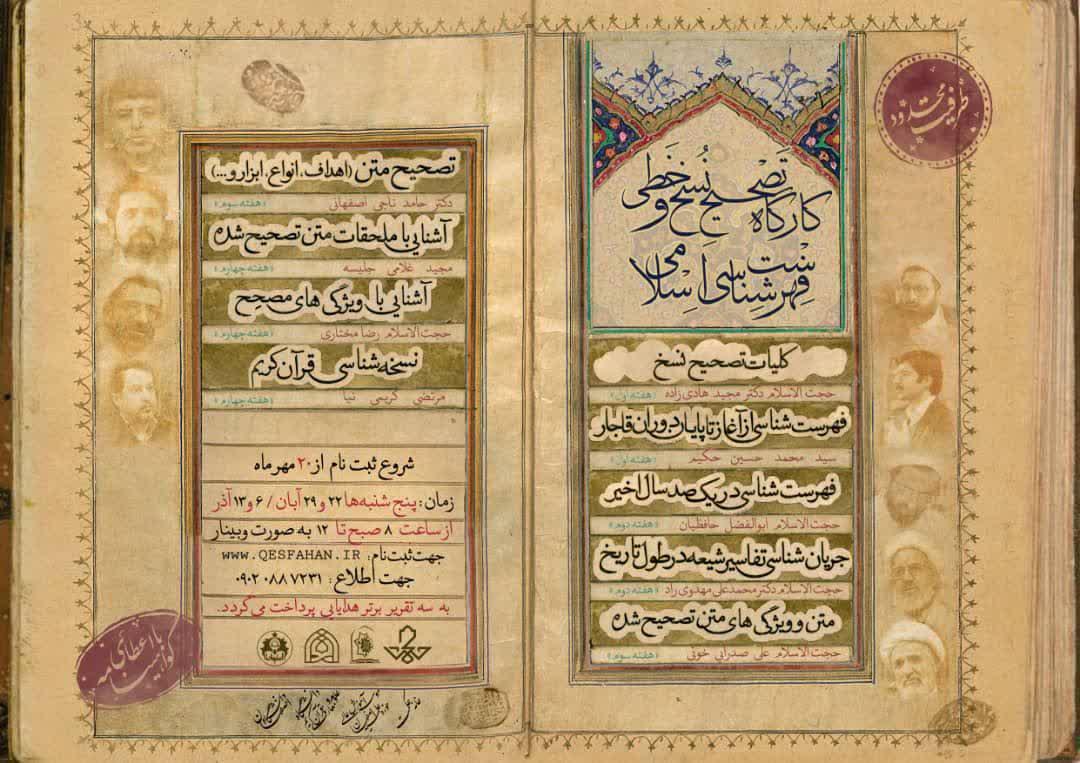 ظرفیت محدود
کارگاه تصحیح نسخ خطی و
فهرست شناسی اسلامی
کلیات تصحیح نسخ
حجت الاسلام دکتر مجید هادی زاده «هفته اول»
فهرست شناسی از آغاز تا پایان دوران قاجار
سید محمد حسین حکیم «هفته اول»
فهرست شناسی در یک صد سال اخیر
حجت الاسلام ابوالفضل حافظیان «هفته دوم»
جریان شناسی تفاسیر شیعه در طول تاریخ
حجت الاسلام دکتر محمدعلی مهدوی راد «هفته دوم»
متن و ویژگی های متن تصحیح شده
حجت الاسلام علی صدرایی خوئی «هفته سوم»
تصحیح متن (اهداف، انواع، ابزار و...)
دکتر حامد ناجی اصفهانی «هفته سوم»
آشنایی با ملحقات متن تصحیح شده
مجید غلامی جلیسه «هفته چهارم»
آشنایی با ویژگی های مصحح
حجت الاسلام رضا مختاری «هفته چهارم»
نسخه شناسی قرآن کریم
مرتضی کریمی نیا «هفته چهارم»
شروع ثبت نام از ۲۰ مهر ماه
زمان: پنج شنبه‌ها ۲۲ و ۲۹ آبان / ۶ و ۱۳ آذر
از ساعت ۸ صبح تا ۱۲ به صورت وبینار
جهت ثبت نام: WWW.QESFAHAN.IR
جهت اطلاع: ۰۹۰۲ ۰۸۸ ۷۲۳۱
به سه تقریر برتر هدایایی پرداخت می گردد.
با اعطای
گواهینامه